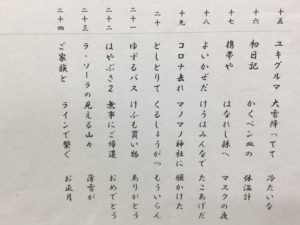 十五 ユキグルマ 大雪降ってて 冷たいな
十六 初日記 かくペン皿の 体温計
十七 携帯や はなれし孫へ マスクの夜
十八 よいかぜだ けうはみんなで たこあげだ
十九 コロナ去れ マノマノ神社に 願かけた
二十 としとりて くるしょうがつ もういらん
二十一 ゆずるバス けふも買い物 ありがとう
二十二 はやぶさ2 無事にご帰還 おめでとう
二十三 ラ・ソーラの 見える山々 薄雪が
二十四 ご家族と ラインで繋ぐ お正月